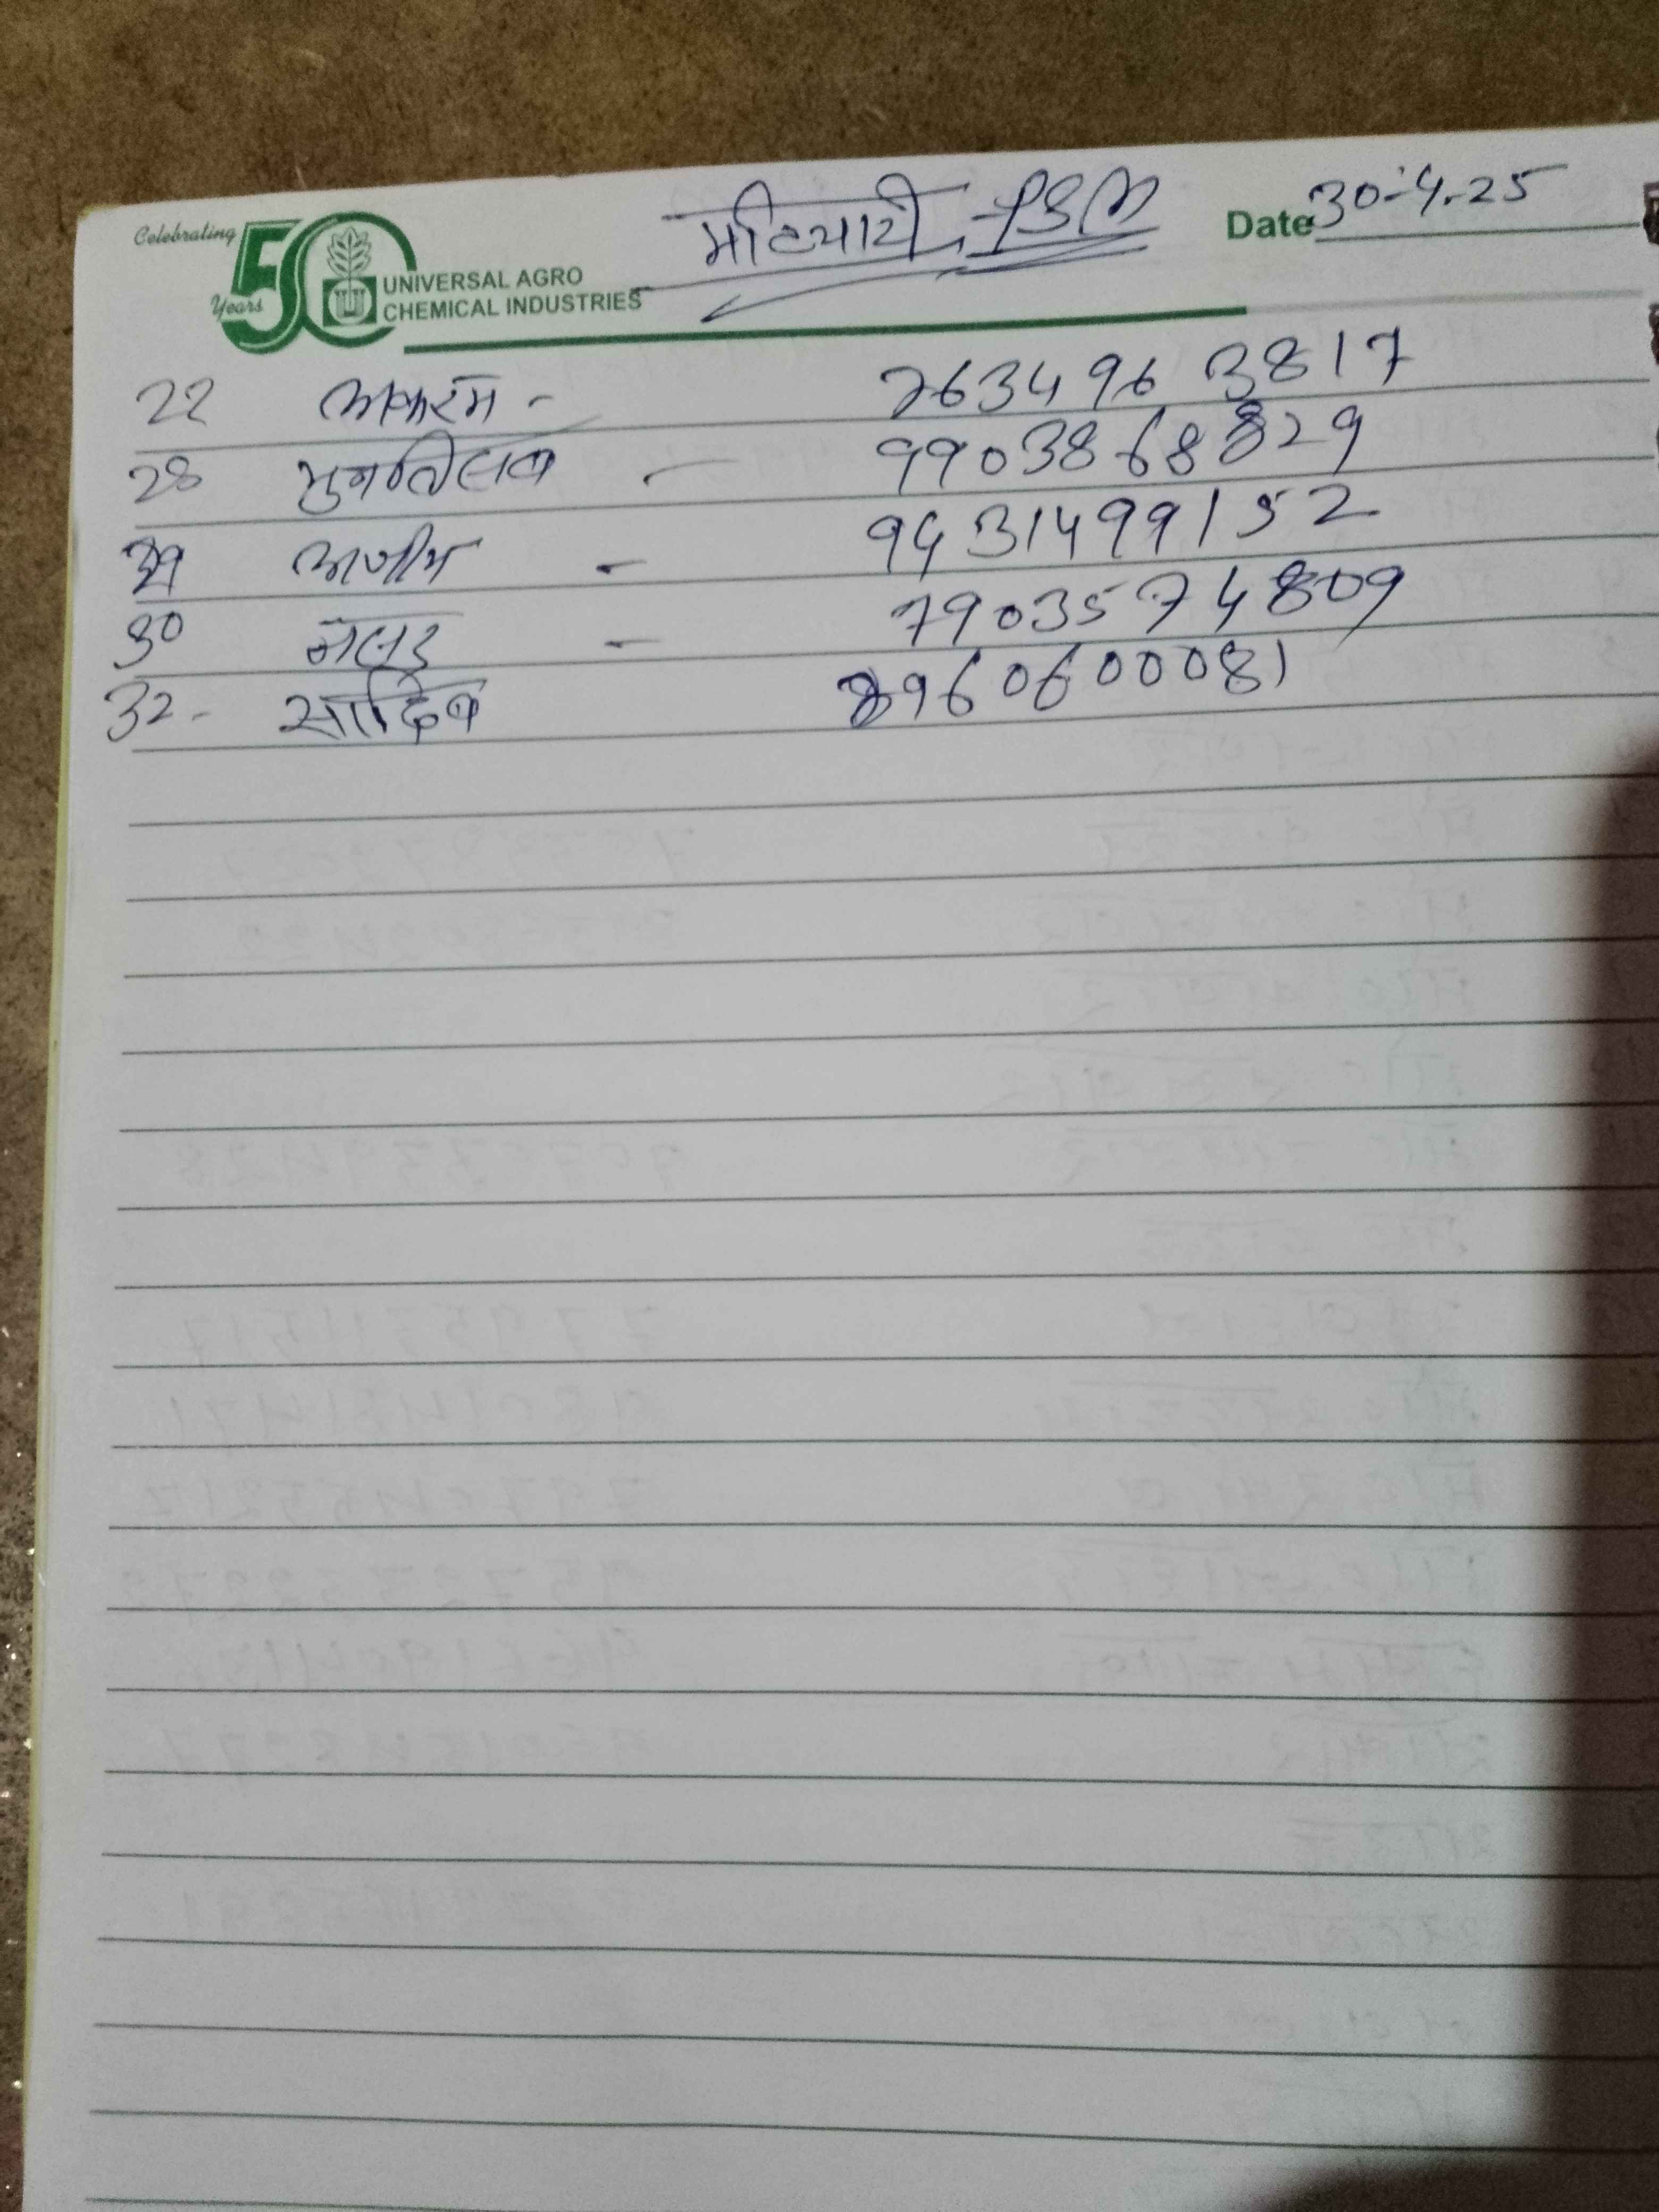 Celebrating
50
Years
UNIVERSAL AGRO
CHEMICAL INDUSTRIES
मटियारी, PSM
Date 30-4-25
22 अकरम - 7634963817
28 - 9903868829
29 अजीम - 9431499152
30 - 7903574809
32- सादिक 8960600081